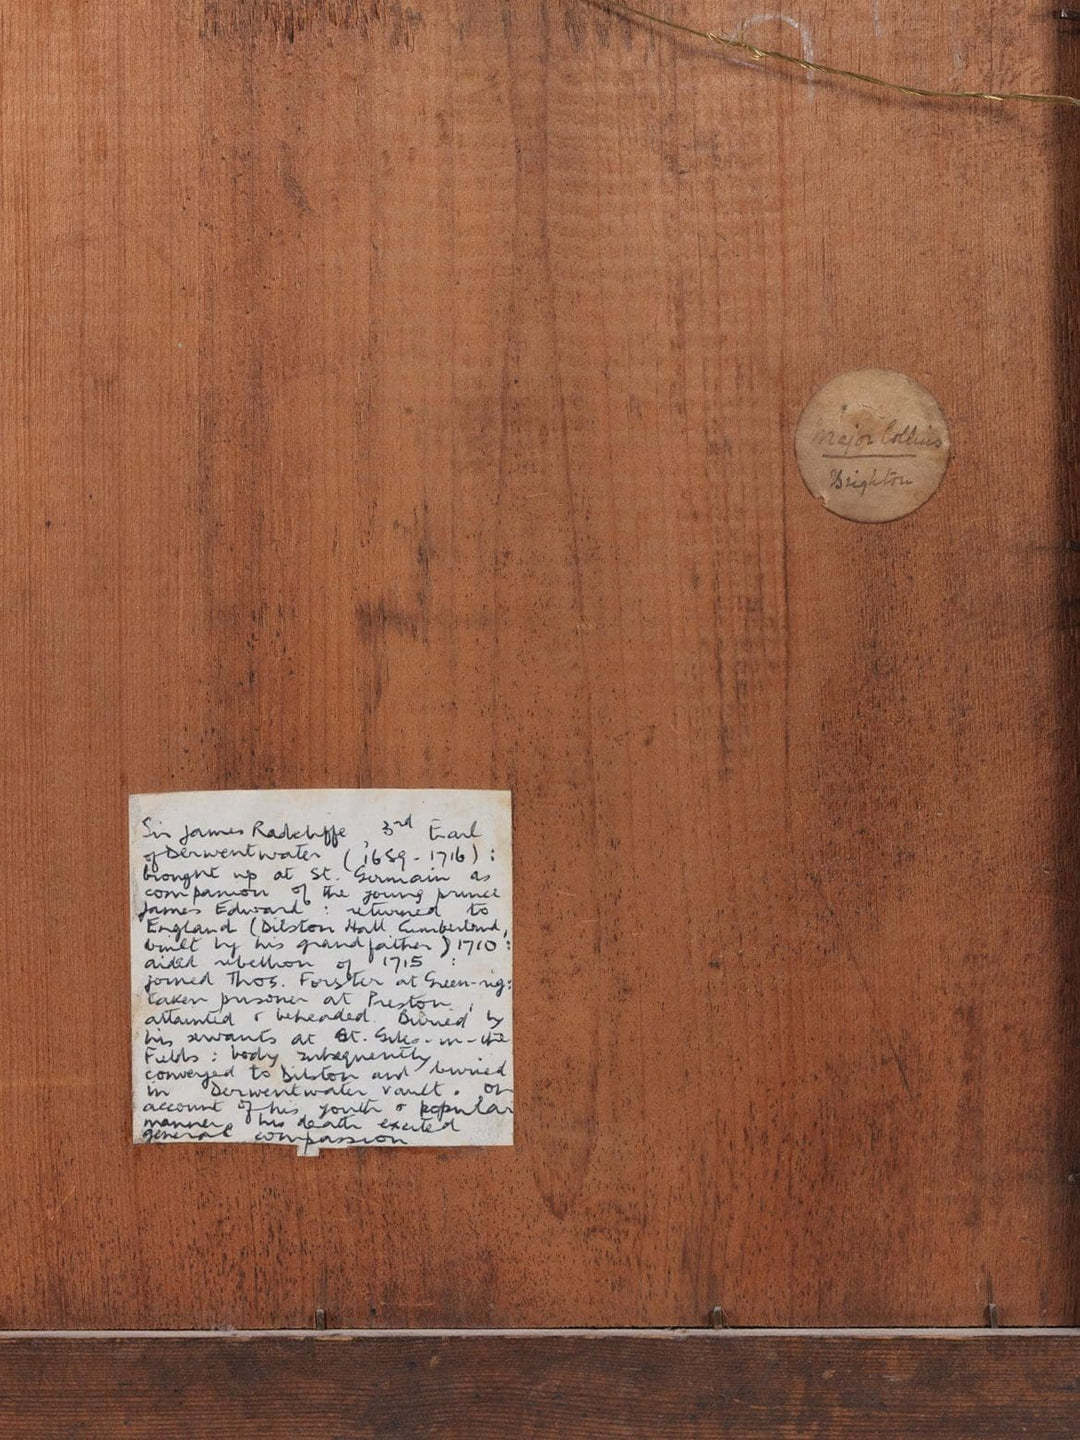 Major Collins
Brighton
Sir James Radcliffe, 3rd Earl
of Derwentwater (1689-1716):
brought up at St. Germain as
companion of the young prince
James Edward: returned to
England (Dilston Hall Cumberland,
built by his grandfather) 1710:
aided rebellion of 1715:
joined Thos. Forster at Green-rig:
taken prisoner at Preston,
attainted & beheaded. Buried by
his servants at St. Giles-in-the
Fields: body subsequently
conveyed to Dilston and buried
in Derwentwater vault. On
account of his youth & popular
manner, his death excited
general compassion